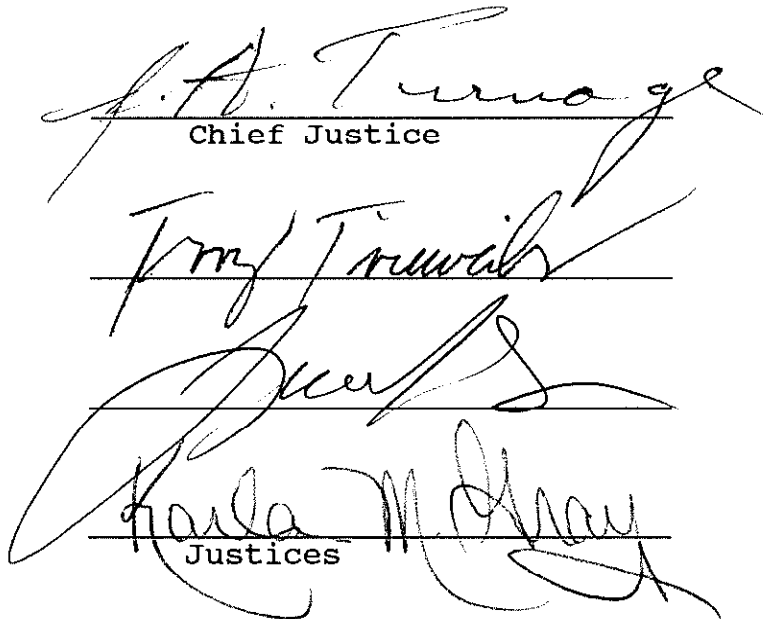 J. A. Turnage
Chief Justice
Terry Trieweiler
Karla M. Gray
Justices